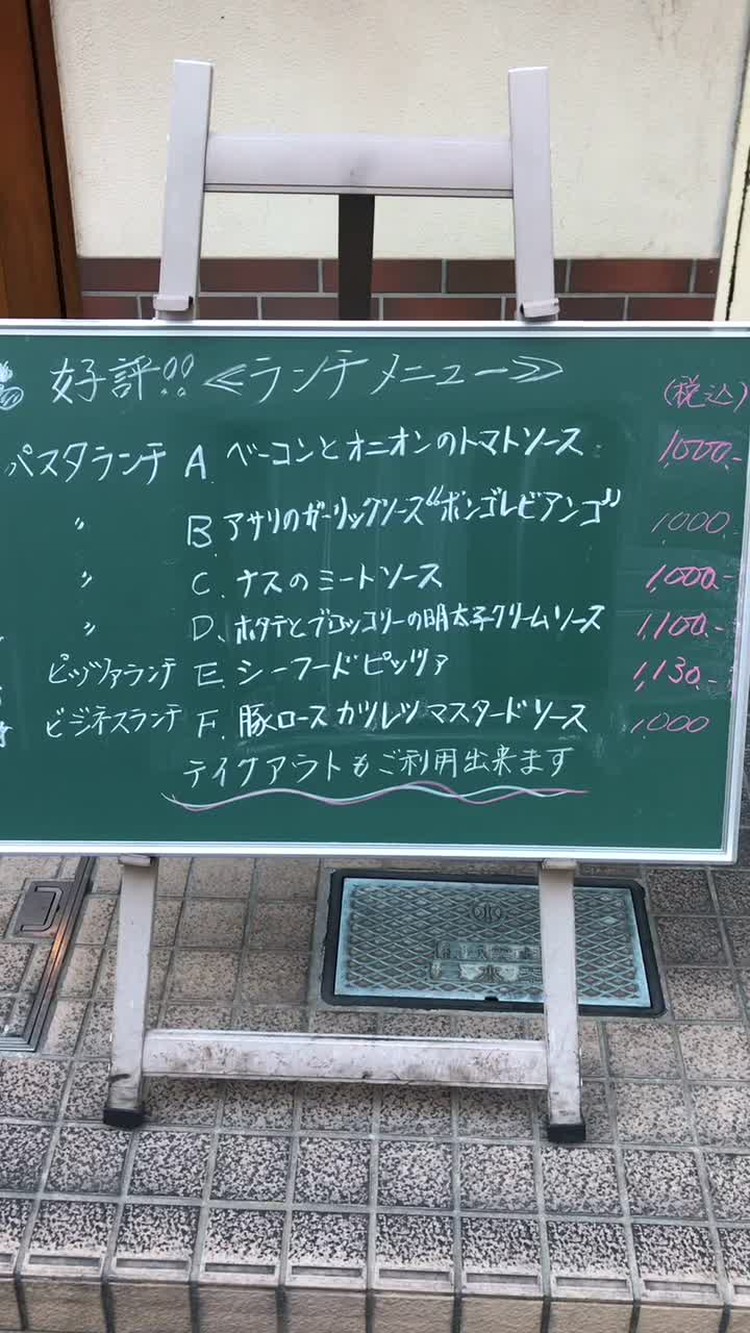 好評!! ≪ランチメニュー≫ (税込)
パスタランチ A. ベーコンとオニオンのトマトソース 1,000.-
〃 B. アサリのガーリックソース“ボンゴレビアンゴ” 1,000.
〃 C. ナスのミートソース 1,000.-
〃 D. ホタテとブロッコリーの明太子クリームソース 1,100.-
ピッツァランチ E. シーフードピッツァ 1,130.-
ビジネスランチ F. 豚ロースカツレツマスタードソース 1,000
テイクアウトもご利用出来ます